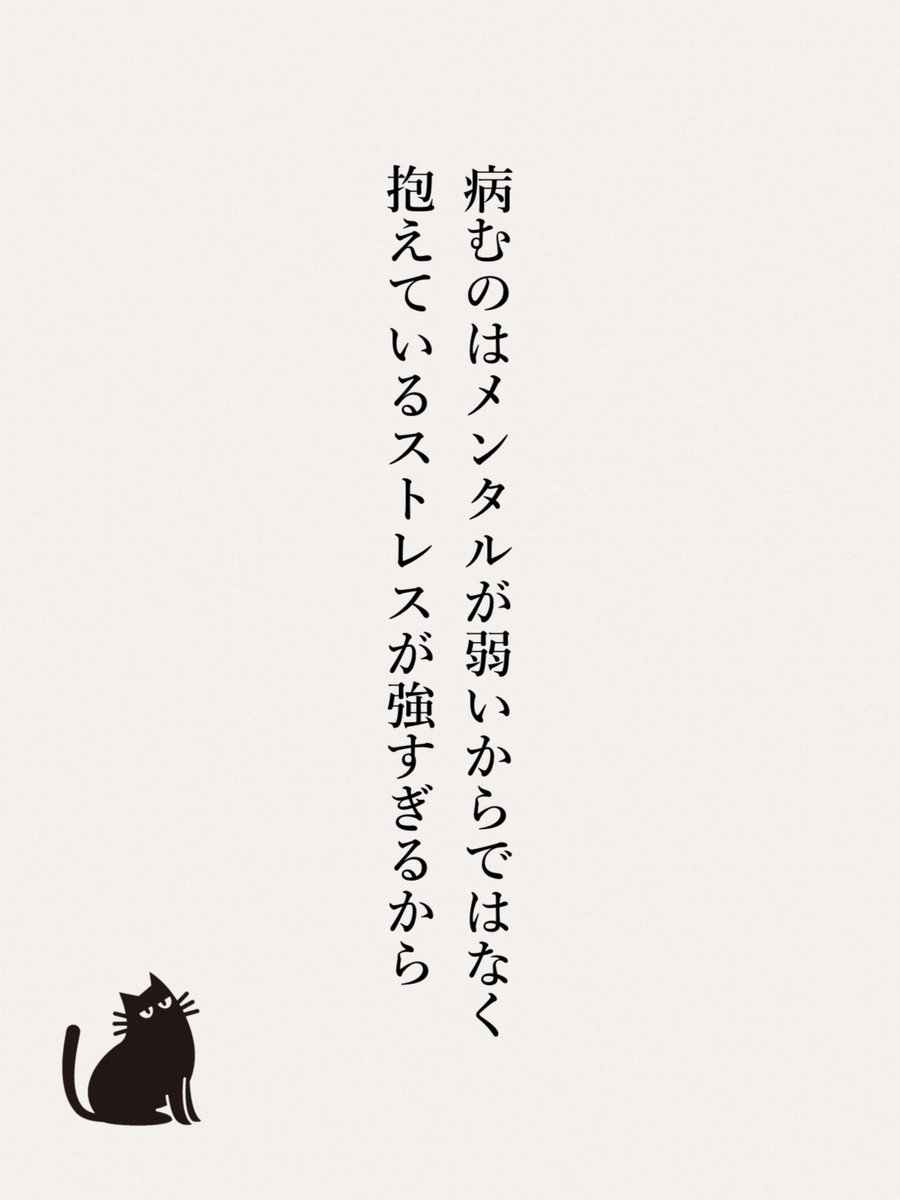 病むのはメンタルが弱いからではなく
抱えているストレスが強すぎるから